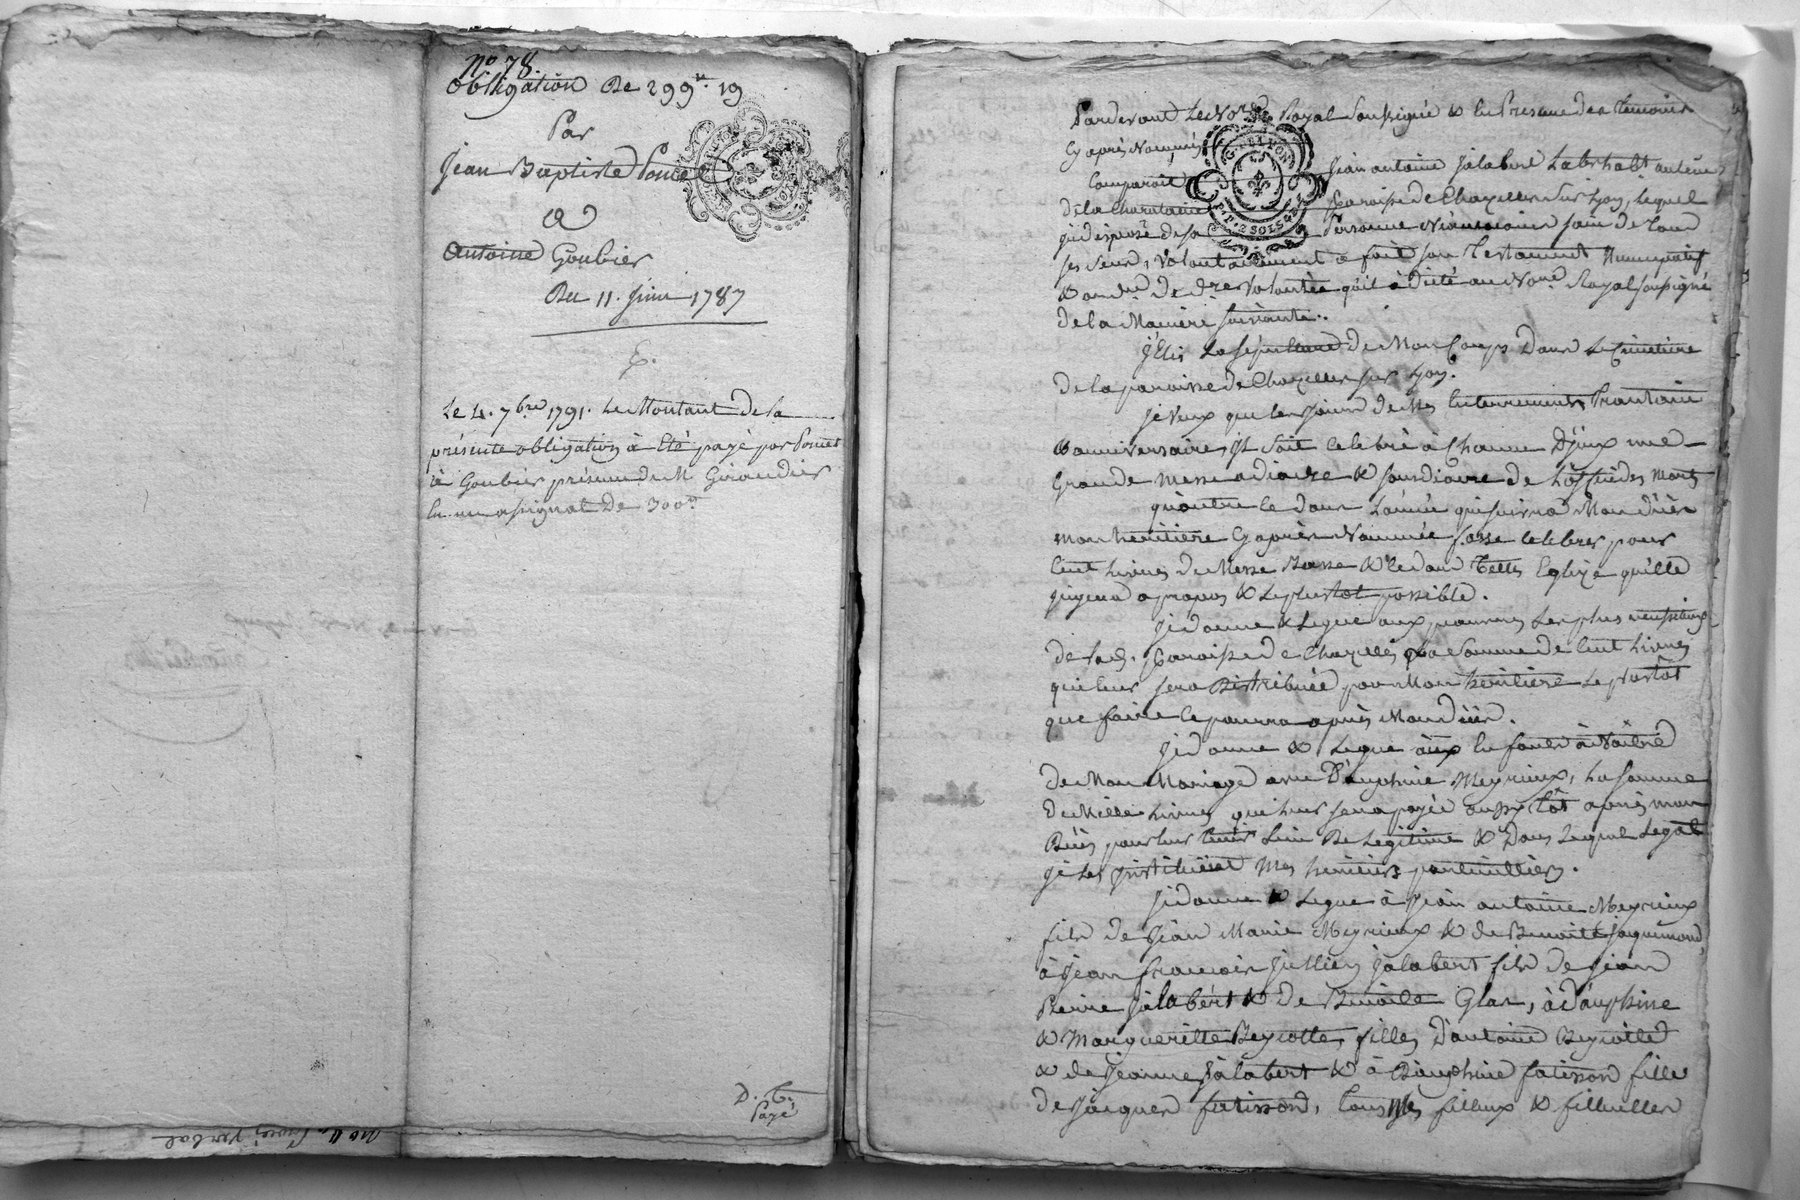 No 78.
Obligation De 299ᵗᵗ 19
Par
Jean Baptiste Poncet
A
Antoine Goubier
Du 11. Juin 1787
Le 4. 7bre 1791. Le Montant de la
présente obligation à Eté payé par Poncet
à Goubier présence de Mr Giraudier
en un asignat de 300ᵗᵗ
D. G.
Payé
Pardevant Le Nore Royal Soussigné & En Presence des Temoins
Cy après Nommés
G. DE LYON
P.P. 2 SOLS
Comparoit Jean antoine Jalabert Labr habt au lieu
de la Charataine Paroisse de Chazelles sur Lyon, Lequel
indisposé de sa Personne Néanmoins sain de Tous
ses Sens, Volontairement a fait son Testament Nuncupatif
& ordre de dre Volontée qu'il à Dicté au Nore Royal soussigné
de la Maniere suivante.
J'Elis La sépulture de Mon Corps Dans Le Cimetière
de la paroisse de Chazelles sur Lyon.
Je Veux que les jours de Mes Enterrements, Trantaine
& anniversaire, Il Soit celebré à Chacun D'iceux une
Grande Messe a diacre & soudiacre de L'office des Morts
qu'outre ce dans L'année qui suivra Mon décès
mon heritière Cy après Nommée fasse celebrer pour
Cent Livres de Messe Basse & ce dans Telles Eglize qu'elle
jugera a propos & Le plustot possible.
Je donne & Legue aux pauvres Les plus necessiteux
de lad. Paroisse de Chazelles La Somme de Cent Livres
qui leur sera Distribuée par Mon heritiere Le plustôt
que faire ce pourra après Mon décès.
Je donne & Legue aux Enfants à Naitre
de Mon Mariage avec Dauphine Meyrieux, La somme
de Mille Livres qui leur sera payée aussy tôt après mon
Décès pour leur tenir Lieu De Legitime & Dans Lequel Legat
je Les Institüent Mes heritiers particulliers.
Je donne & Legue à Jean antoine Meyrieux
fils de Jean Marie Meyrieux & de Benoite Jaquemond,
à Jean francois Jullien Jalabert fils de Jean
Pierre Jalabert & De Benoite Glas, à Dauphine
& Margueritte Beyzolles, filles D'antoine Beyzolle
& de Jeanne Jalabert & à Dauphine fatisson fille
de Jacques fatisson, Tous Mes filleux & filleulles